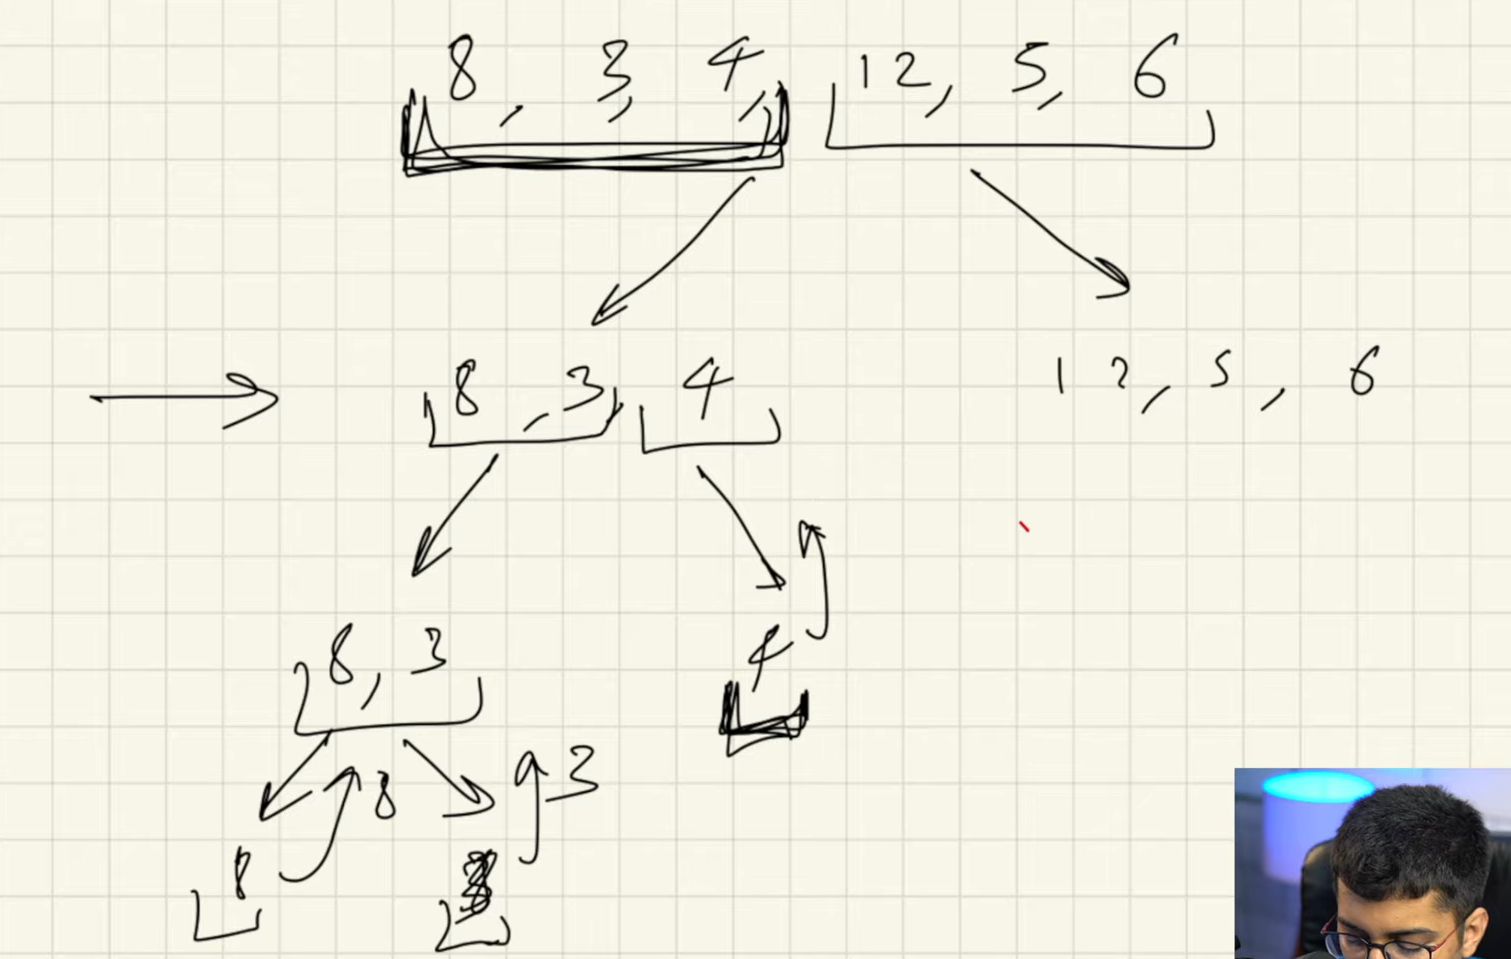 8, 3, 4, 12, 5, 6
8, 3, 4
12, 5, 6
8, 3
4
8
3
8
3